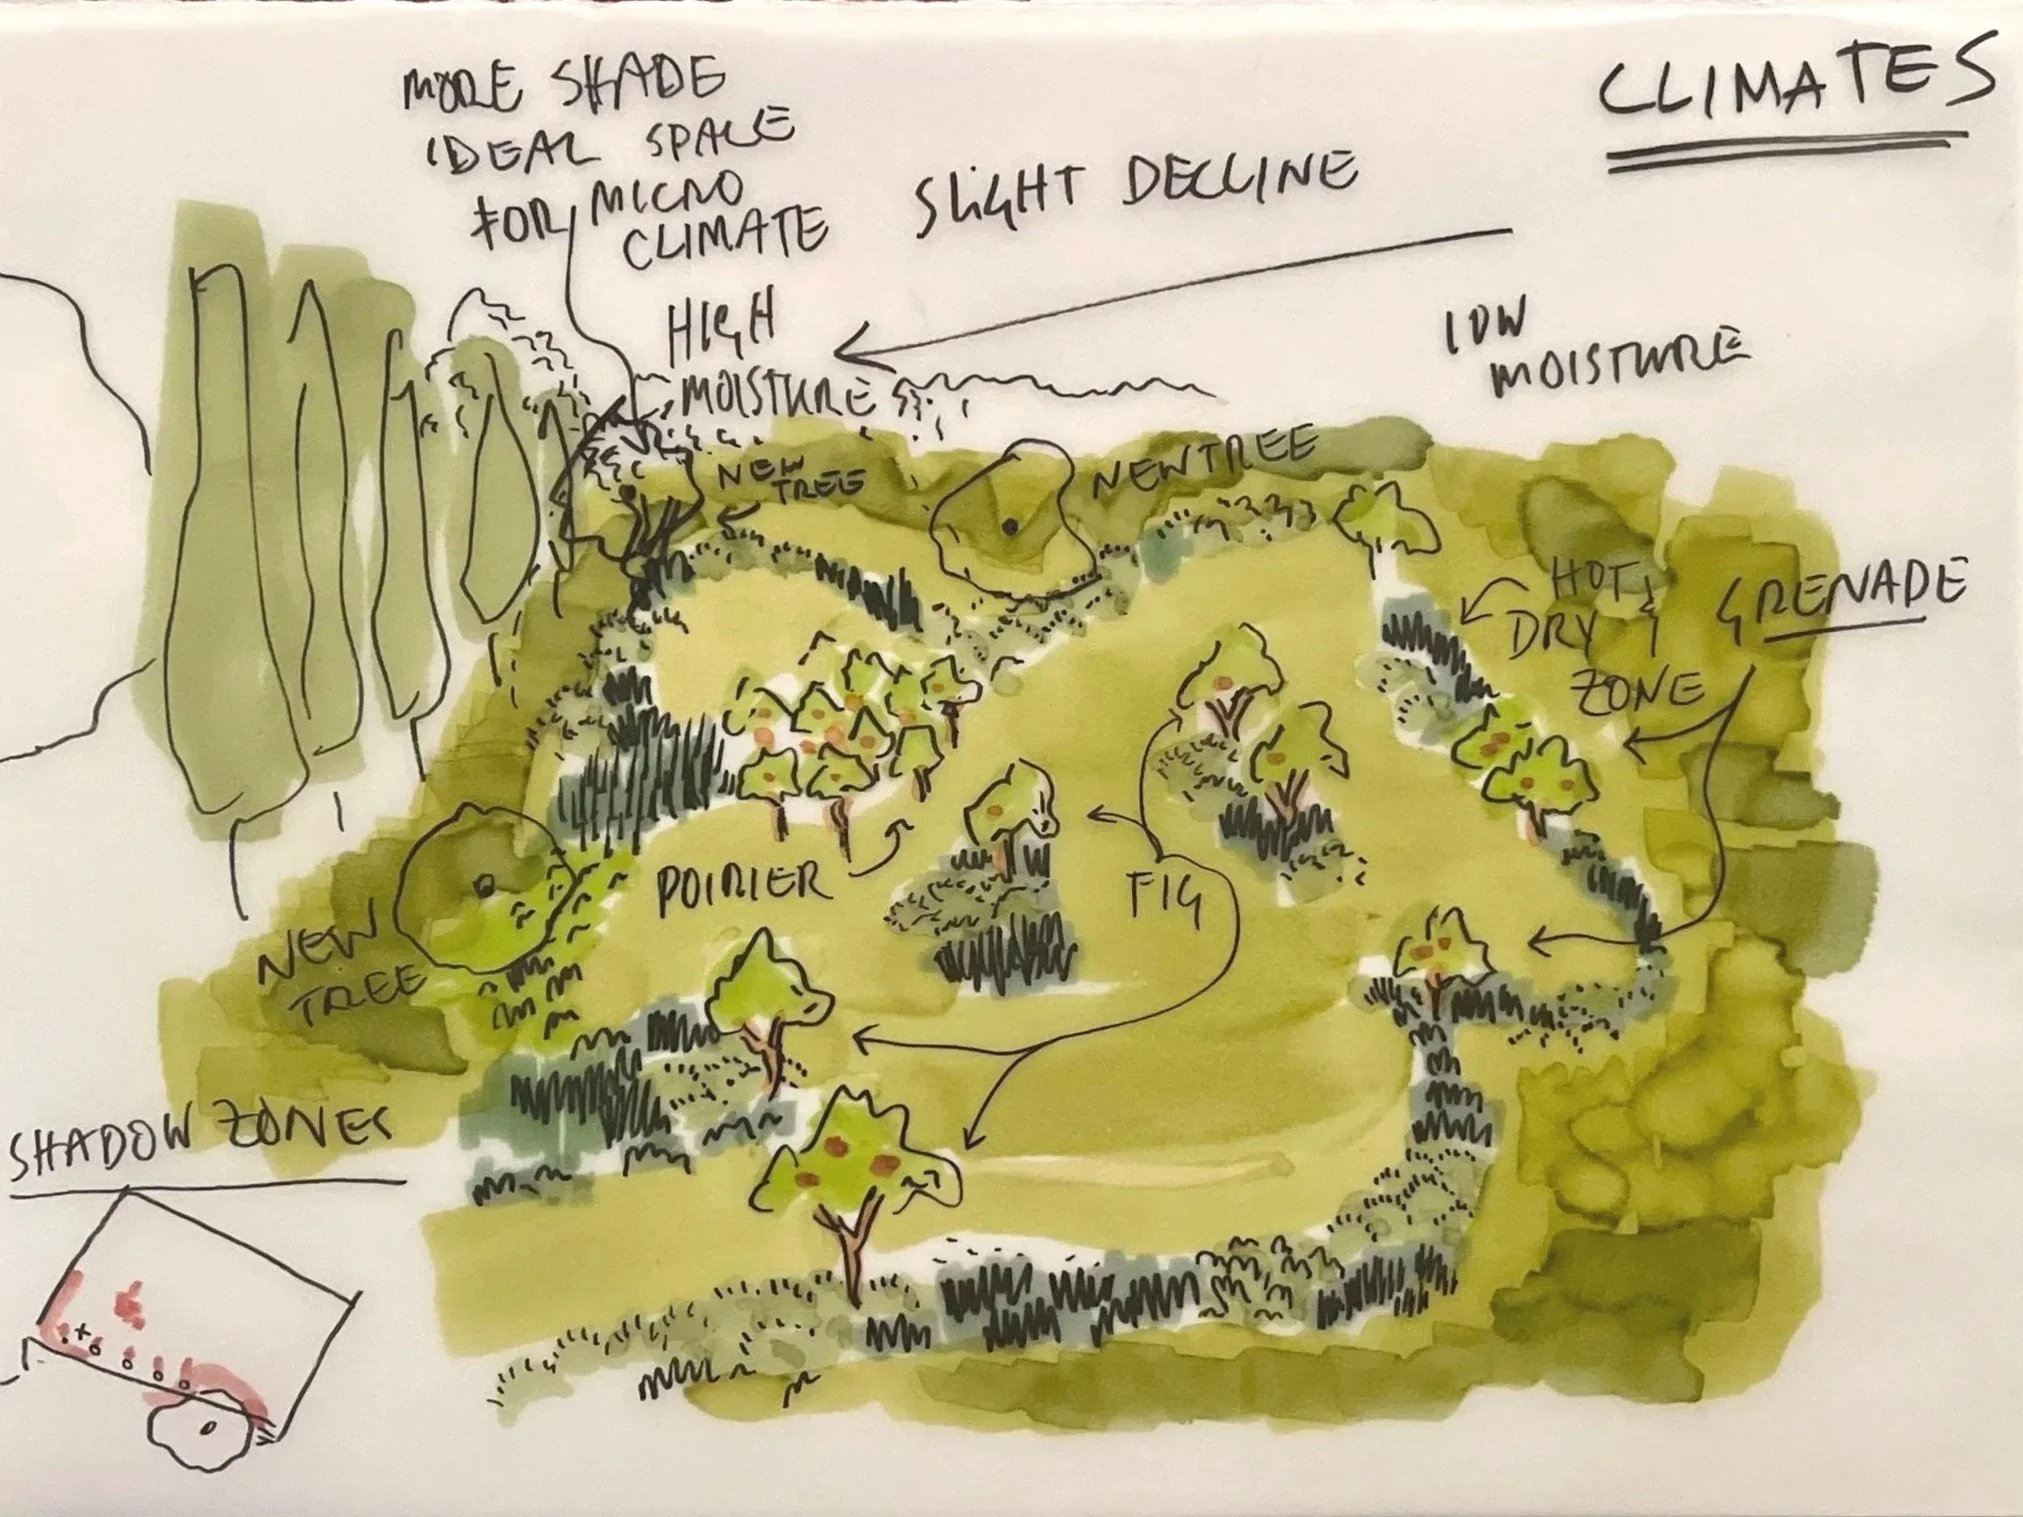 CLIMATES
MORE SHADE
IDEAL SPACE
FOR MICRO
CLIMATE
SLIGHT DECLINE
HIGH
MOISTURE
LOW
MOISTURE
NEW
TREE
NEW TREE
HOT &
DRY
ZONE
GRENADE
POIRIER
FIG
NEW
TREE
SHADOW ZONES